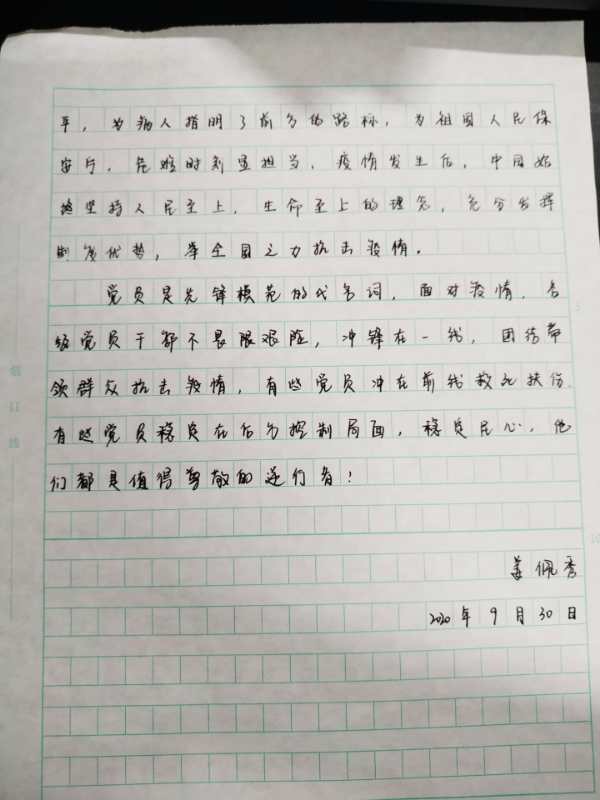 平，为病人指明了前方的路标，为祖国人民保
安宁。危难时刻显担当，疫情发生后，中国始
终坚持人民至上，生命至上的理念，充分发挥
制度优势，举全国之力抗击疫情。
党员是先锋模范的代名词，面对疫情，各
级党员干部不畏艰险，冲锋在一线，团结带
领群众抗击疫情，有些党员冲在前线救死扶伤
有些党员稳定在后方控制局面，稳定民心，他
们都是值得尊敬的逆行者！
姜佩秀
2020年9月30日
装订线